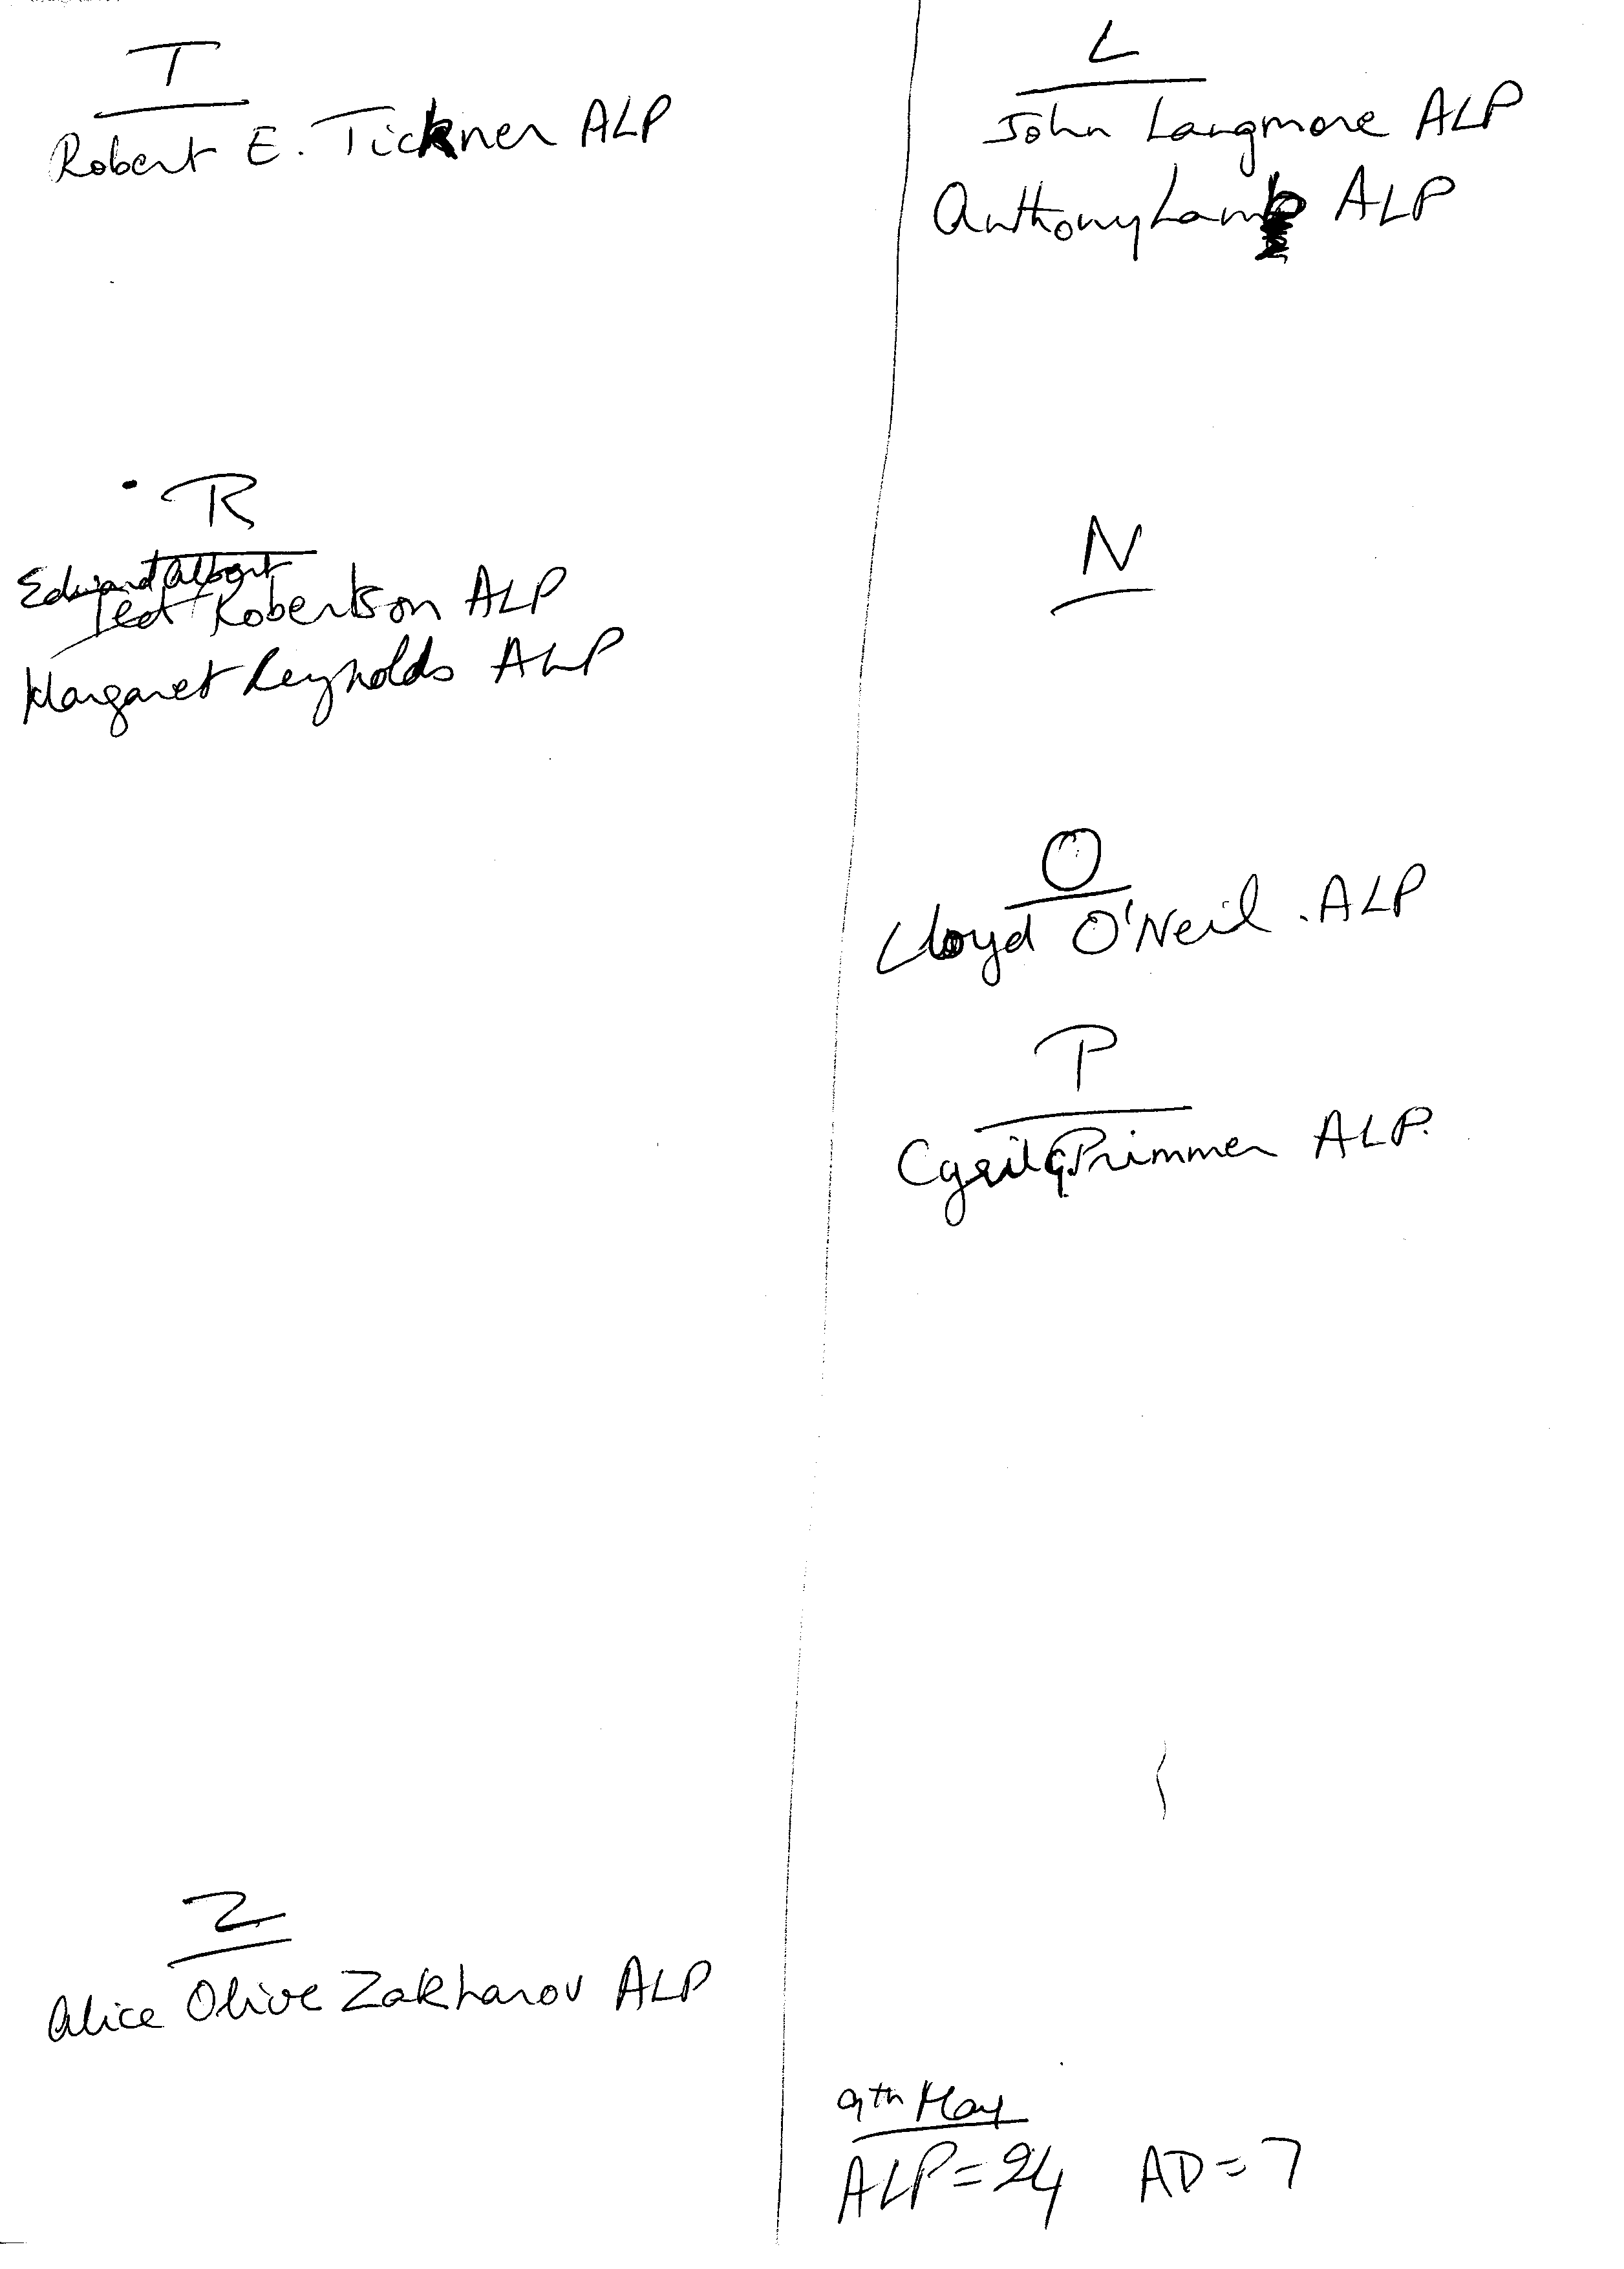 T
Robert E. Tickner ALP
R
Edward Albert
Ted Robertson ALP
Margaret Reynolds ALP
Z
Alice Olive Zakharov ALP
L
John Langmore ALP
Anthony Lamb ALP
N
O
Lloyd O'Neil . ALP
P
Cyril G. Primmer ALP.
9th May
ALP = 24 AD = 7